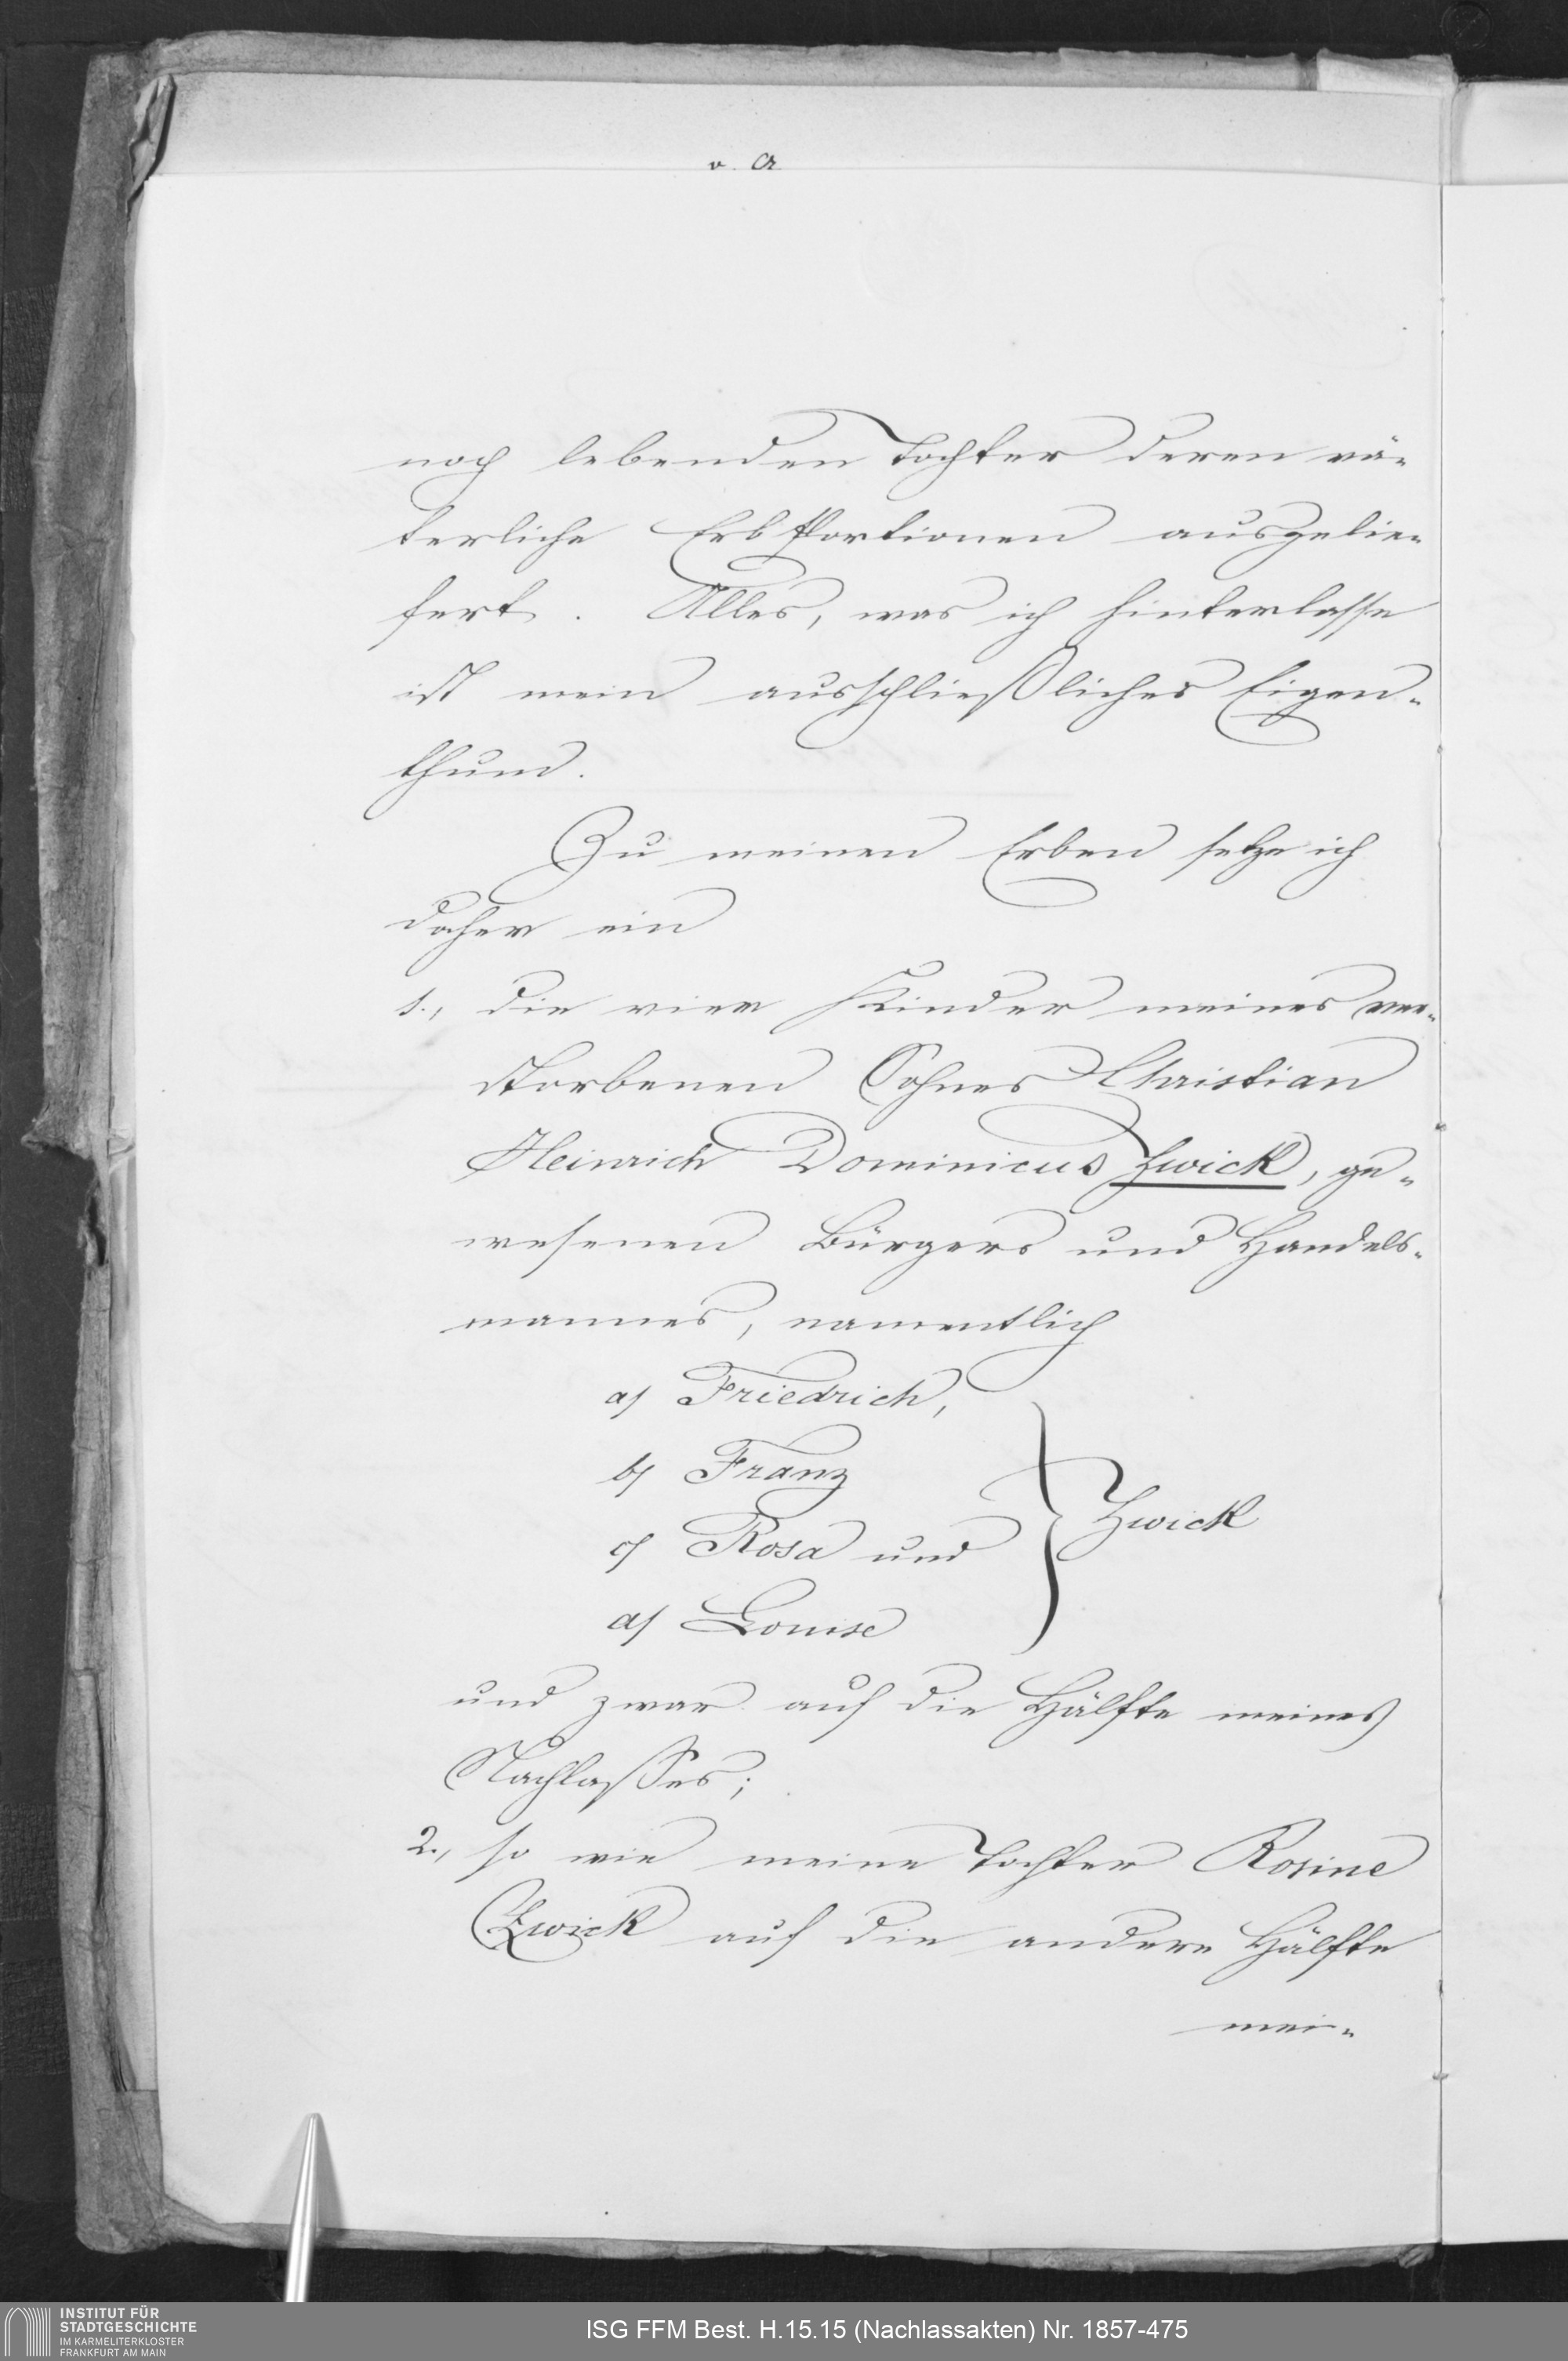 noch lebenden Tochter deren vä-
terliche Erbportionen ausgelie-
fert. Alles, was ich hinterlasse
ist mein ausschließliches Eigen-
thum.
Zu meinen Erben setze ich
daher ein
1., die vier Kinder meines ver-
storbenen Sohnes Christian
Heinrich Dominicus Zwick, ge-
wesenen Bürgers und Handels-
mannes, namentlich
a) Friedrich,
b) Franz
c) Rosa und
Zwick
d) Louise
und zwar auf die Hälfte meines
Nachlasses;
2., so wie meine Tochter Rosine
Zwick auf die andere Hälfte
mei-
INSTITUT FÜR
STADTGESCHICHTE
IM KARMELITERKLOSTER
FRANKFURT AM MAIN
ISG FFM Best. H.15.15 (Nachlassakten) Nr. 1857-475